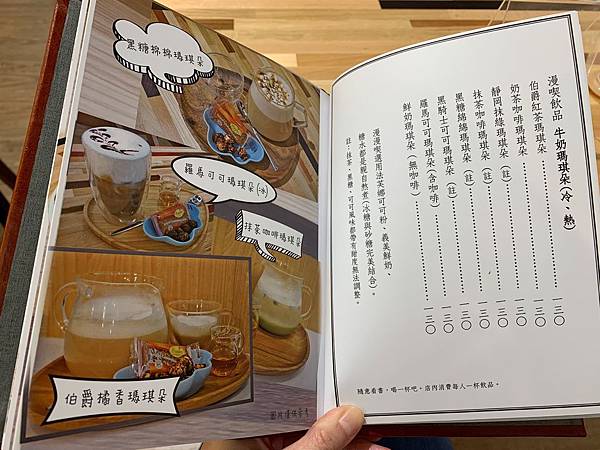 黑糖綿綿瑪琪朵
羅馬可可瑪琪朵(冰)
抹茶咖啡瑪琪朵
伯爵橘香瑪琪朵
圖片僅供參考
漫喫飲品 牛奶瑪琪朵(冷、熱)
伯爵紅茶瑪琪朵 一三〇
奶茶咖啡瑪琪朵 一三〇
靜岡抹綠瑪琪朵(註) 一三〇
抹茶咖啡瑪琪朵(註) 一三〇
黑糖綿綿瑪琪朵(註) 一三〇
黑騎士可可瑪琪朵(註) 一三〇
羅馬可可瑪琪朵(含咖啡) 一三〇
鮮奶瑪琪朵(無咖啡) 一三〇
漫漫喫選用法芙娜可可粉、義美鮮奶、
糖水都是親自熬煮(冰糖與砂糖完美結合)。
註:抹茶、黑糖、可可風味都帶有甜度無法調整。
隨意看書,喝一杯吧。店內消費每人一杯飲品。